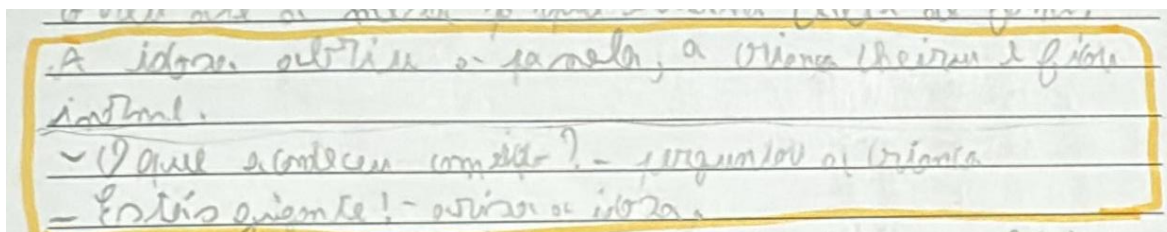 A idosa abriu a panela, a criança cheirou e ficou
imóvel.
- O que aconteceu comigo? - perguntou a criança
- Está quente! - avisou a idoza.